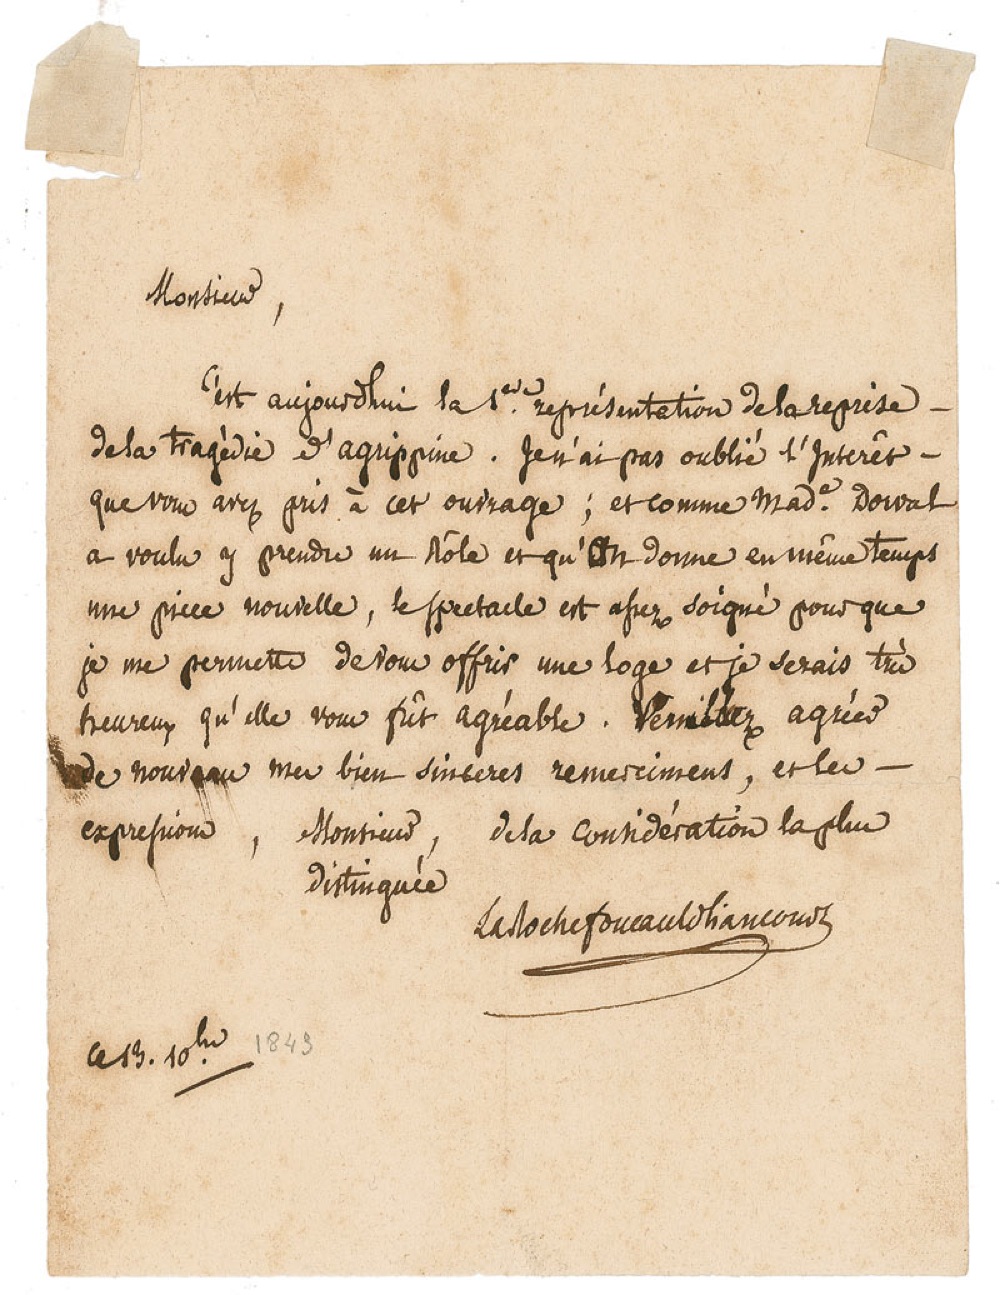 Monsieur,
C'est aujourdhui la 1ere. représentation de la reprise -
de la tragédie d'agrippine. Je n'ai pas oublié l'Interêt -
que vous avez pris à cet ouvrage ; et comme Made. Dorval
a voulu y prendre un Rôle et qu'on donne en même temps
une piece nouvelle, le spectacle est assez soigné pour que
je me permette de vous offrir une loge et je serais très
heureux qu'elle vous fût agréable. Veuillez agréer
de nouveau mes bien sinceres remerciments, et les -
expressions, Monsieur, de la Considération la plus
distinguée
LaRochefoucauld Liancourt
Ce 13. 10bre. 1843